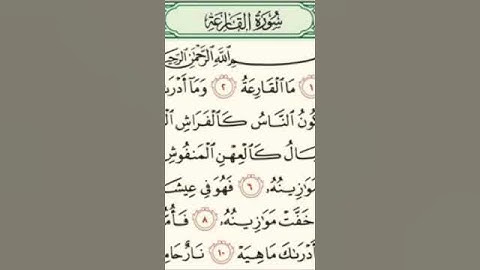 سُورَةُ القَارِعَةِ
ـمِ ٱللَّهِ ٱلرَّحۡمَٰنِ ٱلرَّحِيـ
١ مَا ٱلۡقَارِعَةُ ٢ وَمَآ أَدۡرَىـ
ـكُونُ ٱلنَّاسُ كَٱلۡفَرَاشِ ٱلۡـ
ـبَالُ كَٱلۡعِهۡنِ ٱلۡمَنفُوشِ
مَوَٰزِينُهُۥ ٦ فَهُوَ فِي عِيشَـ
خَفَّتۡ مَوَٰزِينُهُۥ ٨ فَأُمُّـ
أَدۡرَىٰكَ مَا هِيَهۡ ١٠ نَارٌ حَامِـ